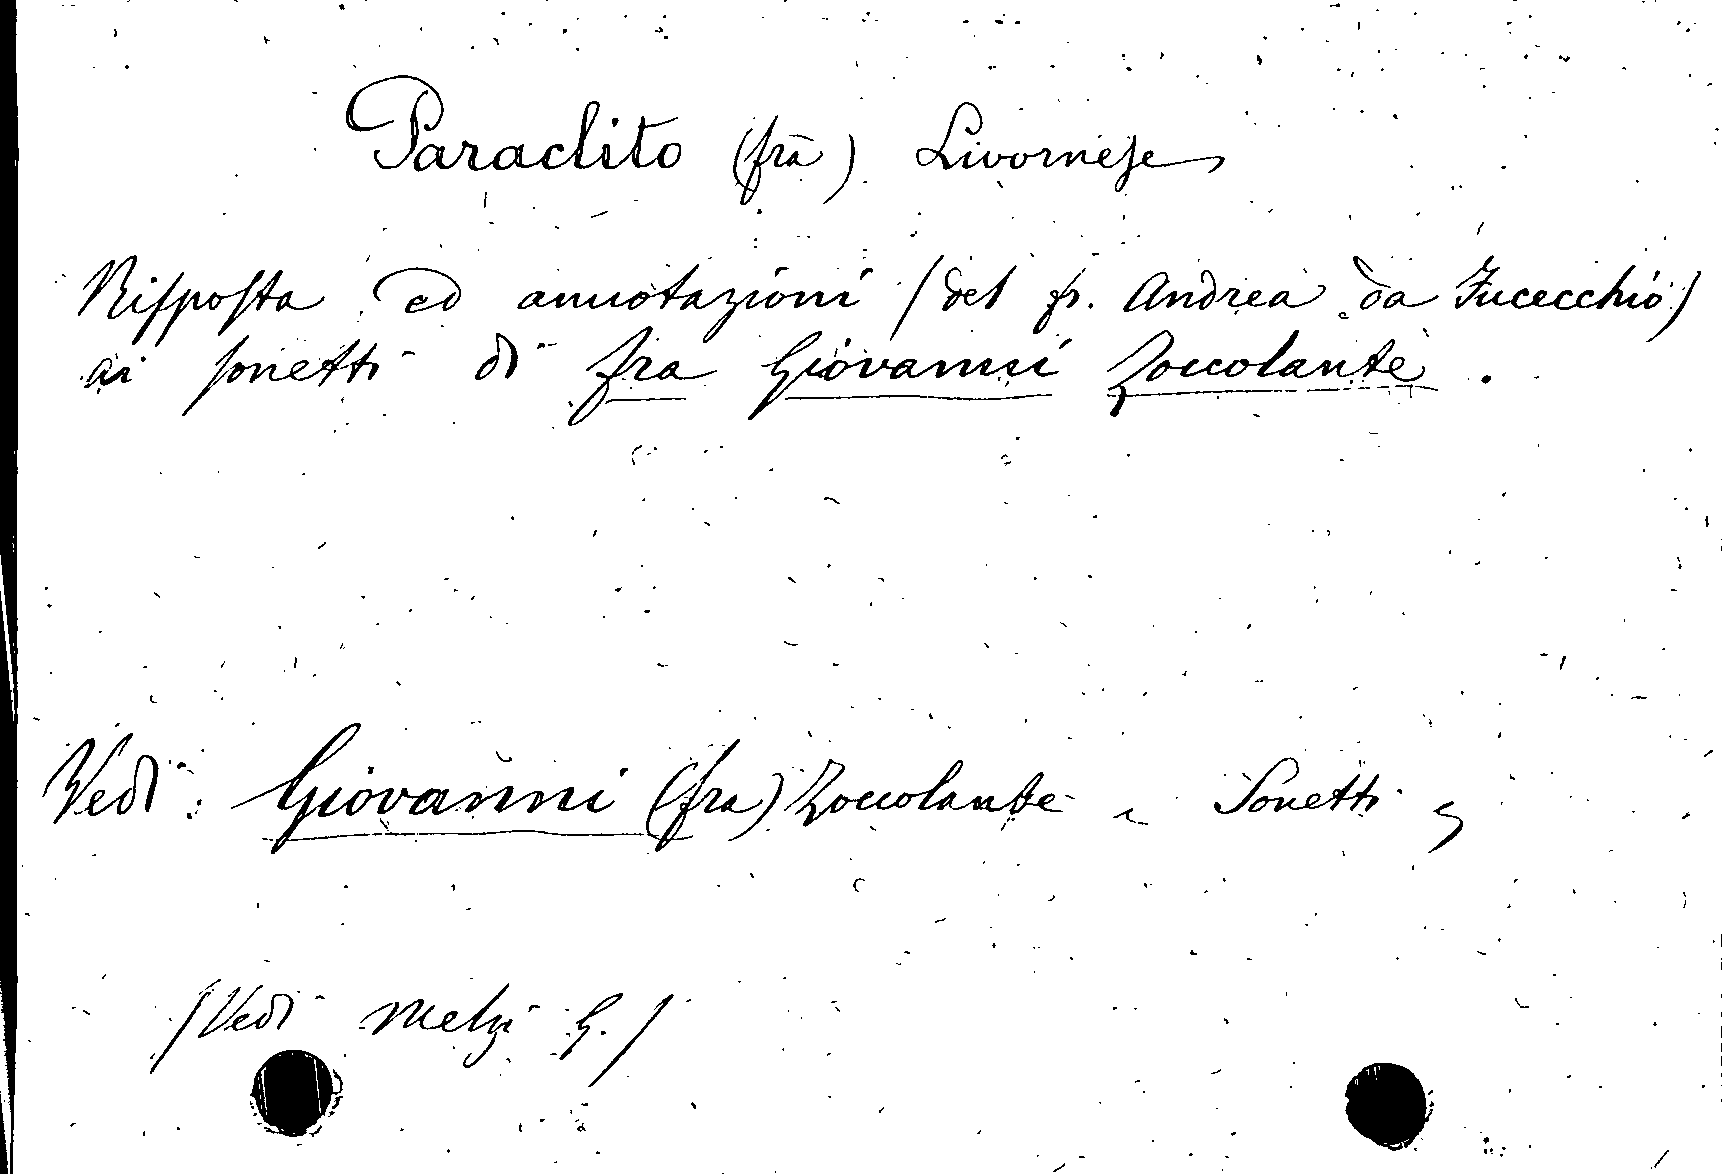 Paraclito (fra) Livornese
Risposta ed annotazioni (del p. Andrea da Fucecchio)
ai sonetti di fra Giovanni Zoccolante.
Vedi: Giovanni (fra) Zoccolante - Sonetti
(Vedi Melzi G.)